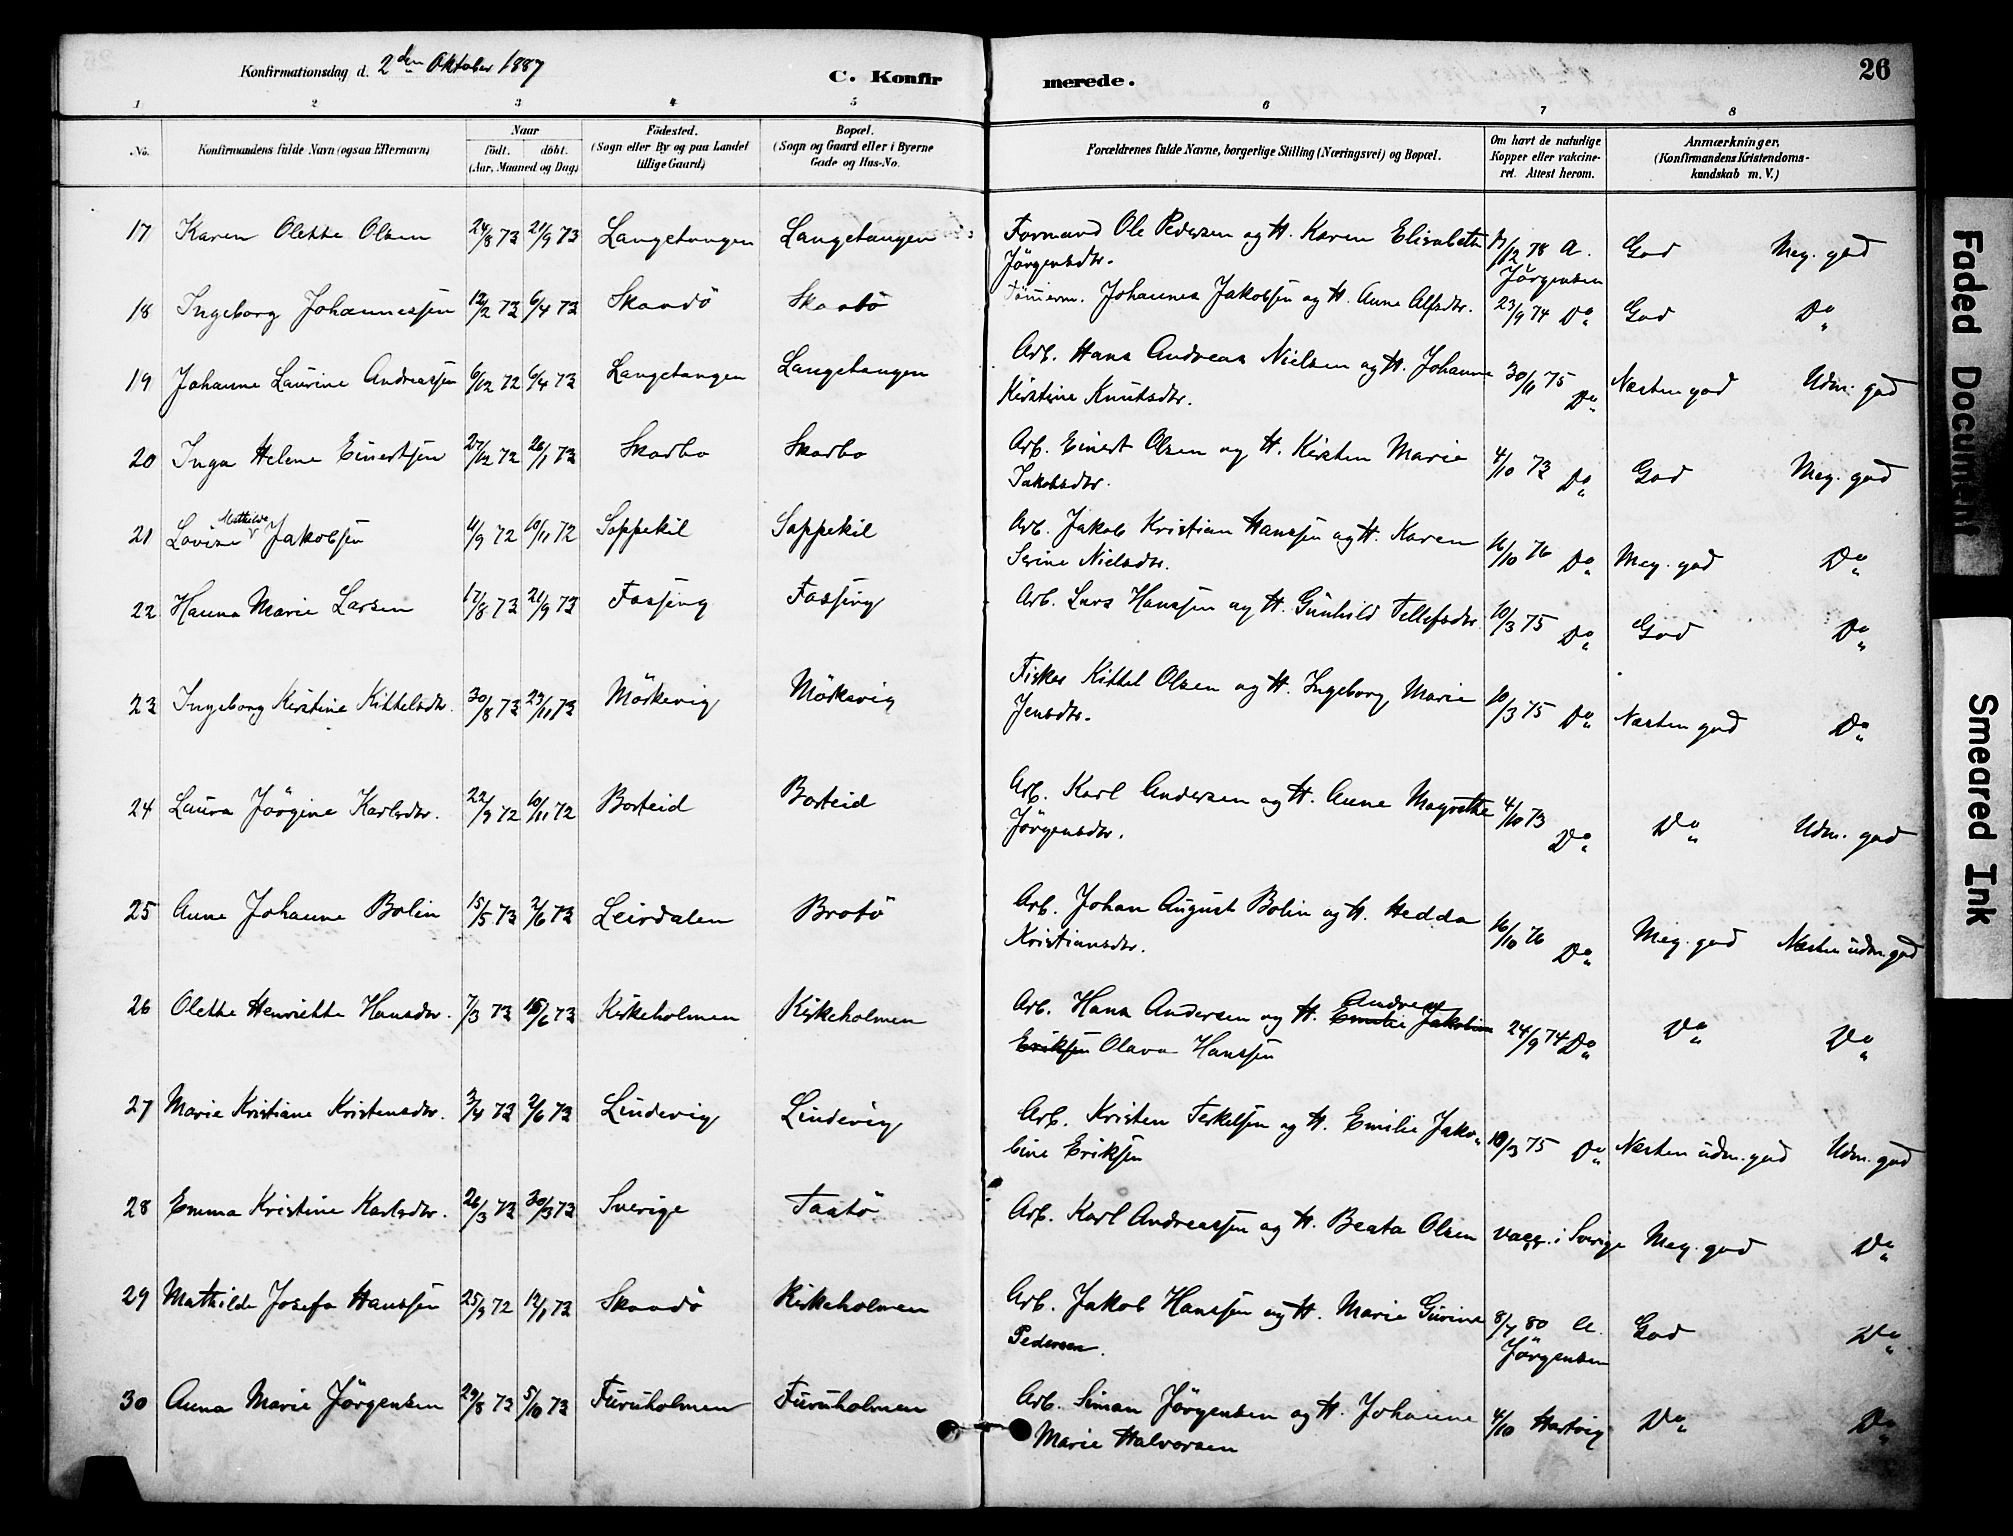 Konfirmationsdag d. 2den Oktober 1887
C. Konfirmerede.
26
1 2 3 4 5 6 7 8
No.
Konfirmandens fulde Navn (ogsaa Efternavn)
Naar
födt. döbt.
(Aar, Maaned og Dag)
Födested.
(Sogn eller By og paa Landet
tillige Gaard)
Bopæl.
(Sogn og Gaard eller i Byerne
Gade og Hus-No.
Forældrenes fulde Navne, borgerlige Stilling (Næringsvei) og Bopæl.
Om havt de naturlige
Kopper eller vakcine-
ret. Attest herom.
Anmærkninger.
(Konfirmandens Kristendoms-
kundskab m. V.)
17 Karen Olette Olsen 24/8 73 21/9 73 Langetangen Langetangen Formand Ole Pedersen og H. Karen Elisabeth 17/12 78 A. God Meg. god
Jörgensdtr. Jörgensen
18 Ingeborg Johannessen 12/2 73 6/4 73 Skaadö Skaatö Tömerm. Johannes Jakobsen og H. Anne Alfsdtr. 23/9 74 Do God Do
19 Johanne Laurine Andreassen 6/12 72 6/4 73 Langetangen Langetangen Arb. Hans Andreas Nielsen og H. Johanne 30/11 75 Do Næsten god Udm. god
Kirstine Knutsdtr.
20 Inga Helene Einertsen 27/12 72 26/1 73 Skarbo Skarbo Arb. Einert Olsen og H. Kirsten Marie 4/10 73 Do God Meg. god
Jakobsdtr.
21 Lovise Mathilde Jakobsen 11/9 72 10/11 72 Soppekil Soppekil Arb. Jakob Kristian Hanssen og H. Karen 16/10 76 Do Meg. god Do
Serine Nielsdtr.
22 Hanna Marie Larsen 17/8 73 21/9 73 Fossing Fossing Arb. Lars Hanssen og H. Gunhild Tellefsdtr. 10/3 75 Do God Do
23 Ingeborg Kirstine Kittelsdtr. 30/8 73 23/11 73 Mörkevig Mörkevig Fisker Kittel Olsen og H. Ingeborg Marie 10/3 75 Do Næsten god Do
Jensdtr.
24 Laura Jörgine Karlsdtr. 22/9 72 10/11 72 Borteid Borteid Arb. Karl Andersen og H. Anne Magrethe 4/10 73 Do Do Udm. god
Jörgensdtr.
25 Anne Johanne Bolin 15/5 73 2/6 73 Leirdalen Brotö Arb. Johan August Bolin og H. Hedda 16/10 76 Do Meg. god Næsten udm. god
Kristiansdtr.
26 Olette Henriette Hansdtr. 7/3 73 15/6 73 Kirkeholmen Kirkeholmen Arb. Hans Andersen og H. Emilie Jakobine Andrea 24/9 74 Do Do Do
Eriksen Olava Hanssen
27 Marie Kristiane Kristensdtr. 3/4 73 2/6 73 Lindevig Lindevig Arb. Kristen Terkelsen og H. Emilie Jako- 10/3 75 Do Næsten udm. god Udm. god
bine Eriksen
28 Emma Kristine Karlsdtr. 26/3 73 30/3 73 Sverige Taatö Arb. Karl Andreassen og H. Beata Olsen vacc. i Sverige Meg. god Do
29 Mathilde Josefa Hanssen 25/9 72 12/1 73 Skaadö Kirkeholmen Arb. Jakob Hanssen og H. Marie Gurine 8/7 80 A. God Do
Pedersen. Jörgensen
30 Anna Marie Jörgensen 29/8 73 5/10 73 Furuholmen Furuholmen Arb. Simon Jörgensen og H. Johanne 4/10 Hartvig Do Do
Marie Halvorsen
Faded Document
Smeared Ink